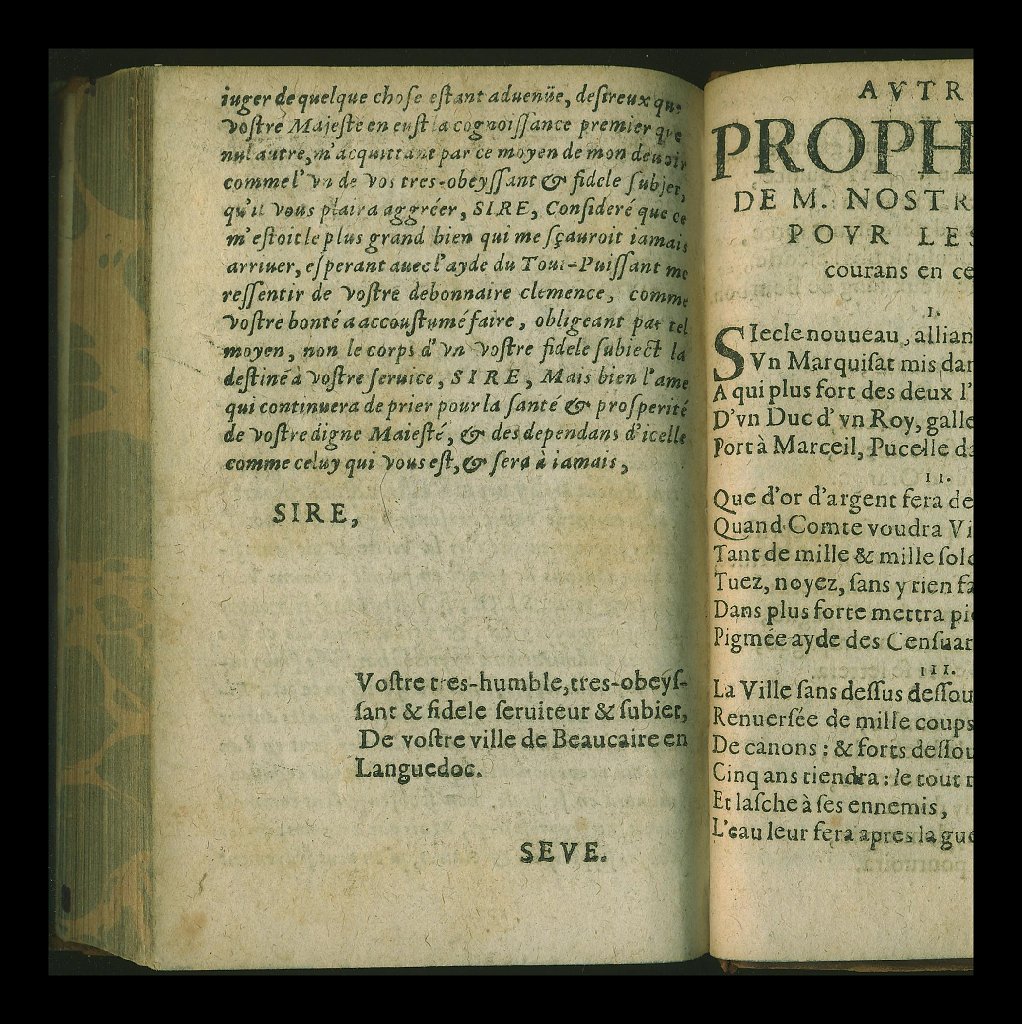 iuger de quelque chose estant aduenüe, desireux que
vostre Majesté en eust la cognoissance premier que
nul autre, m'acquittant par ce moyen de mon deuoir
comme l'vn de vos tres-obeyssant & fidele subjet,
qu'il vous plaira aggréer, SIRE, Consideré que ce
m'estoit le plus grand bien qui me sçauroit iamais
arriuer, esperant auec l'ayde du Tout-Puissant me
ressentir de vostre debonnaire clemence, comme
vostre bonté a accoustumé faire, obligeant par tel
moyen, non le corps d'vn vostre fidele subiect la
destiné à vostre seruice, SIRE, Mais bien l'ame
qui continuera de prier pour la santé & prosperité
de vostre digne Maiesté, & des dependans d'icelle
comme celuy qui vous est, & sera à iamais,
SIRE,
Vostre tres-humble, tres-obeys-
sant & fidele seruiteur & subiet,
De vostre ville de Beaucaire en
Languedoc.
SEVE.
AVTR
PROPH
DE M. NOSTR
POVR LES
courans en ce
I.
SIecle nouueau, allian
Vn Marquisat mis dan
A qui plus fort des deux l'
D'vn Duc d'vn Roy, galle
Port à Marceil, Pucelle da
II.
Que d'or d'argent fera de
Quand Comte voudra Vi
Tant de mille & mille sol
Tuez, noyez, sans y rien fa
Dans plus forte mettra pi
Pigmée ayde des Censuar
III.
La Ville sans dessus dessou
Renuersée de mille coups
De canons : & forts dessou
Cinq ans tiendra : le tout
Et lasche à ses ennemis,
L'eau leur fera apres la gue